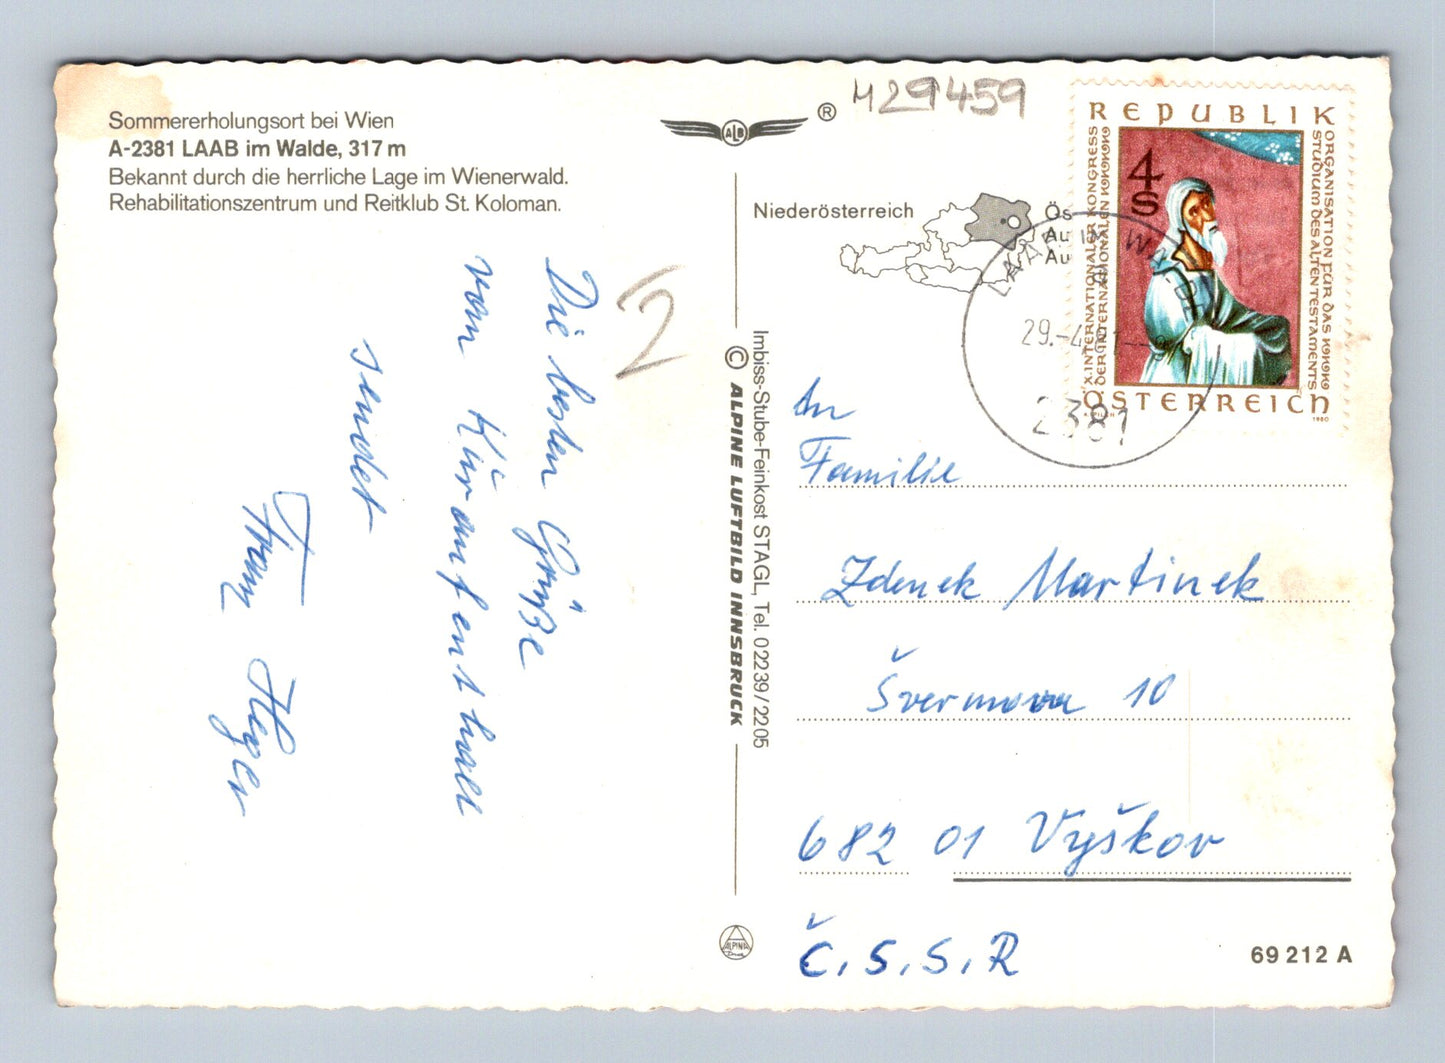 Sommererholungsort bei Wien
A-2381 LAAB im Walde, 317 m
Bekannt durch die herrliche Lage im Wienerwald.
Rehabilitationszentrum und Reitklub St. Koloman.
Die besten Grüße
vom
sendet
Franz
ALB
®
M29459
Niederösterreich
Ös
Au
Au
REPUBLIK
4
S
X. INTERNATIONALER KONGRESS
DER INTERNATIONALEN
ORGANISATION FÜR DAS
STUDIUM DES ALTEN TESTAMENTS
ÖSTERREICH
1980
LAAB IM WALDE
29.-4.
2381
Imbiss-Stube-Feinkost STAGL, Tel. 02239/2205
© ALPINE LUFTBILD INNSBRUCK
An
Familie
Zdenek Martinek
Švermova 10
682 01 Vyškov
Č.S.S.R
ALPINA
69 212 A